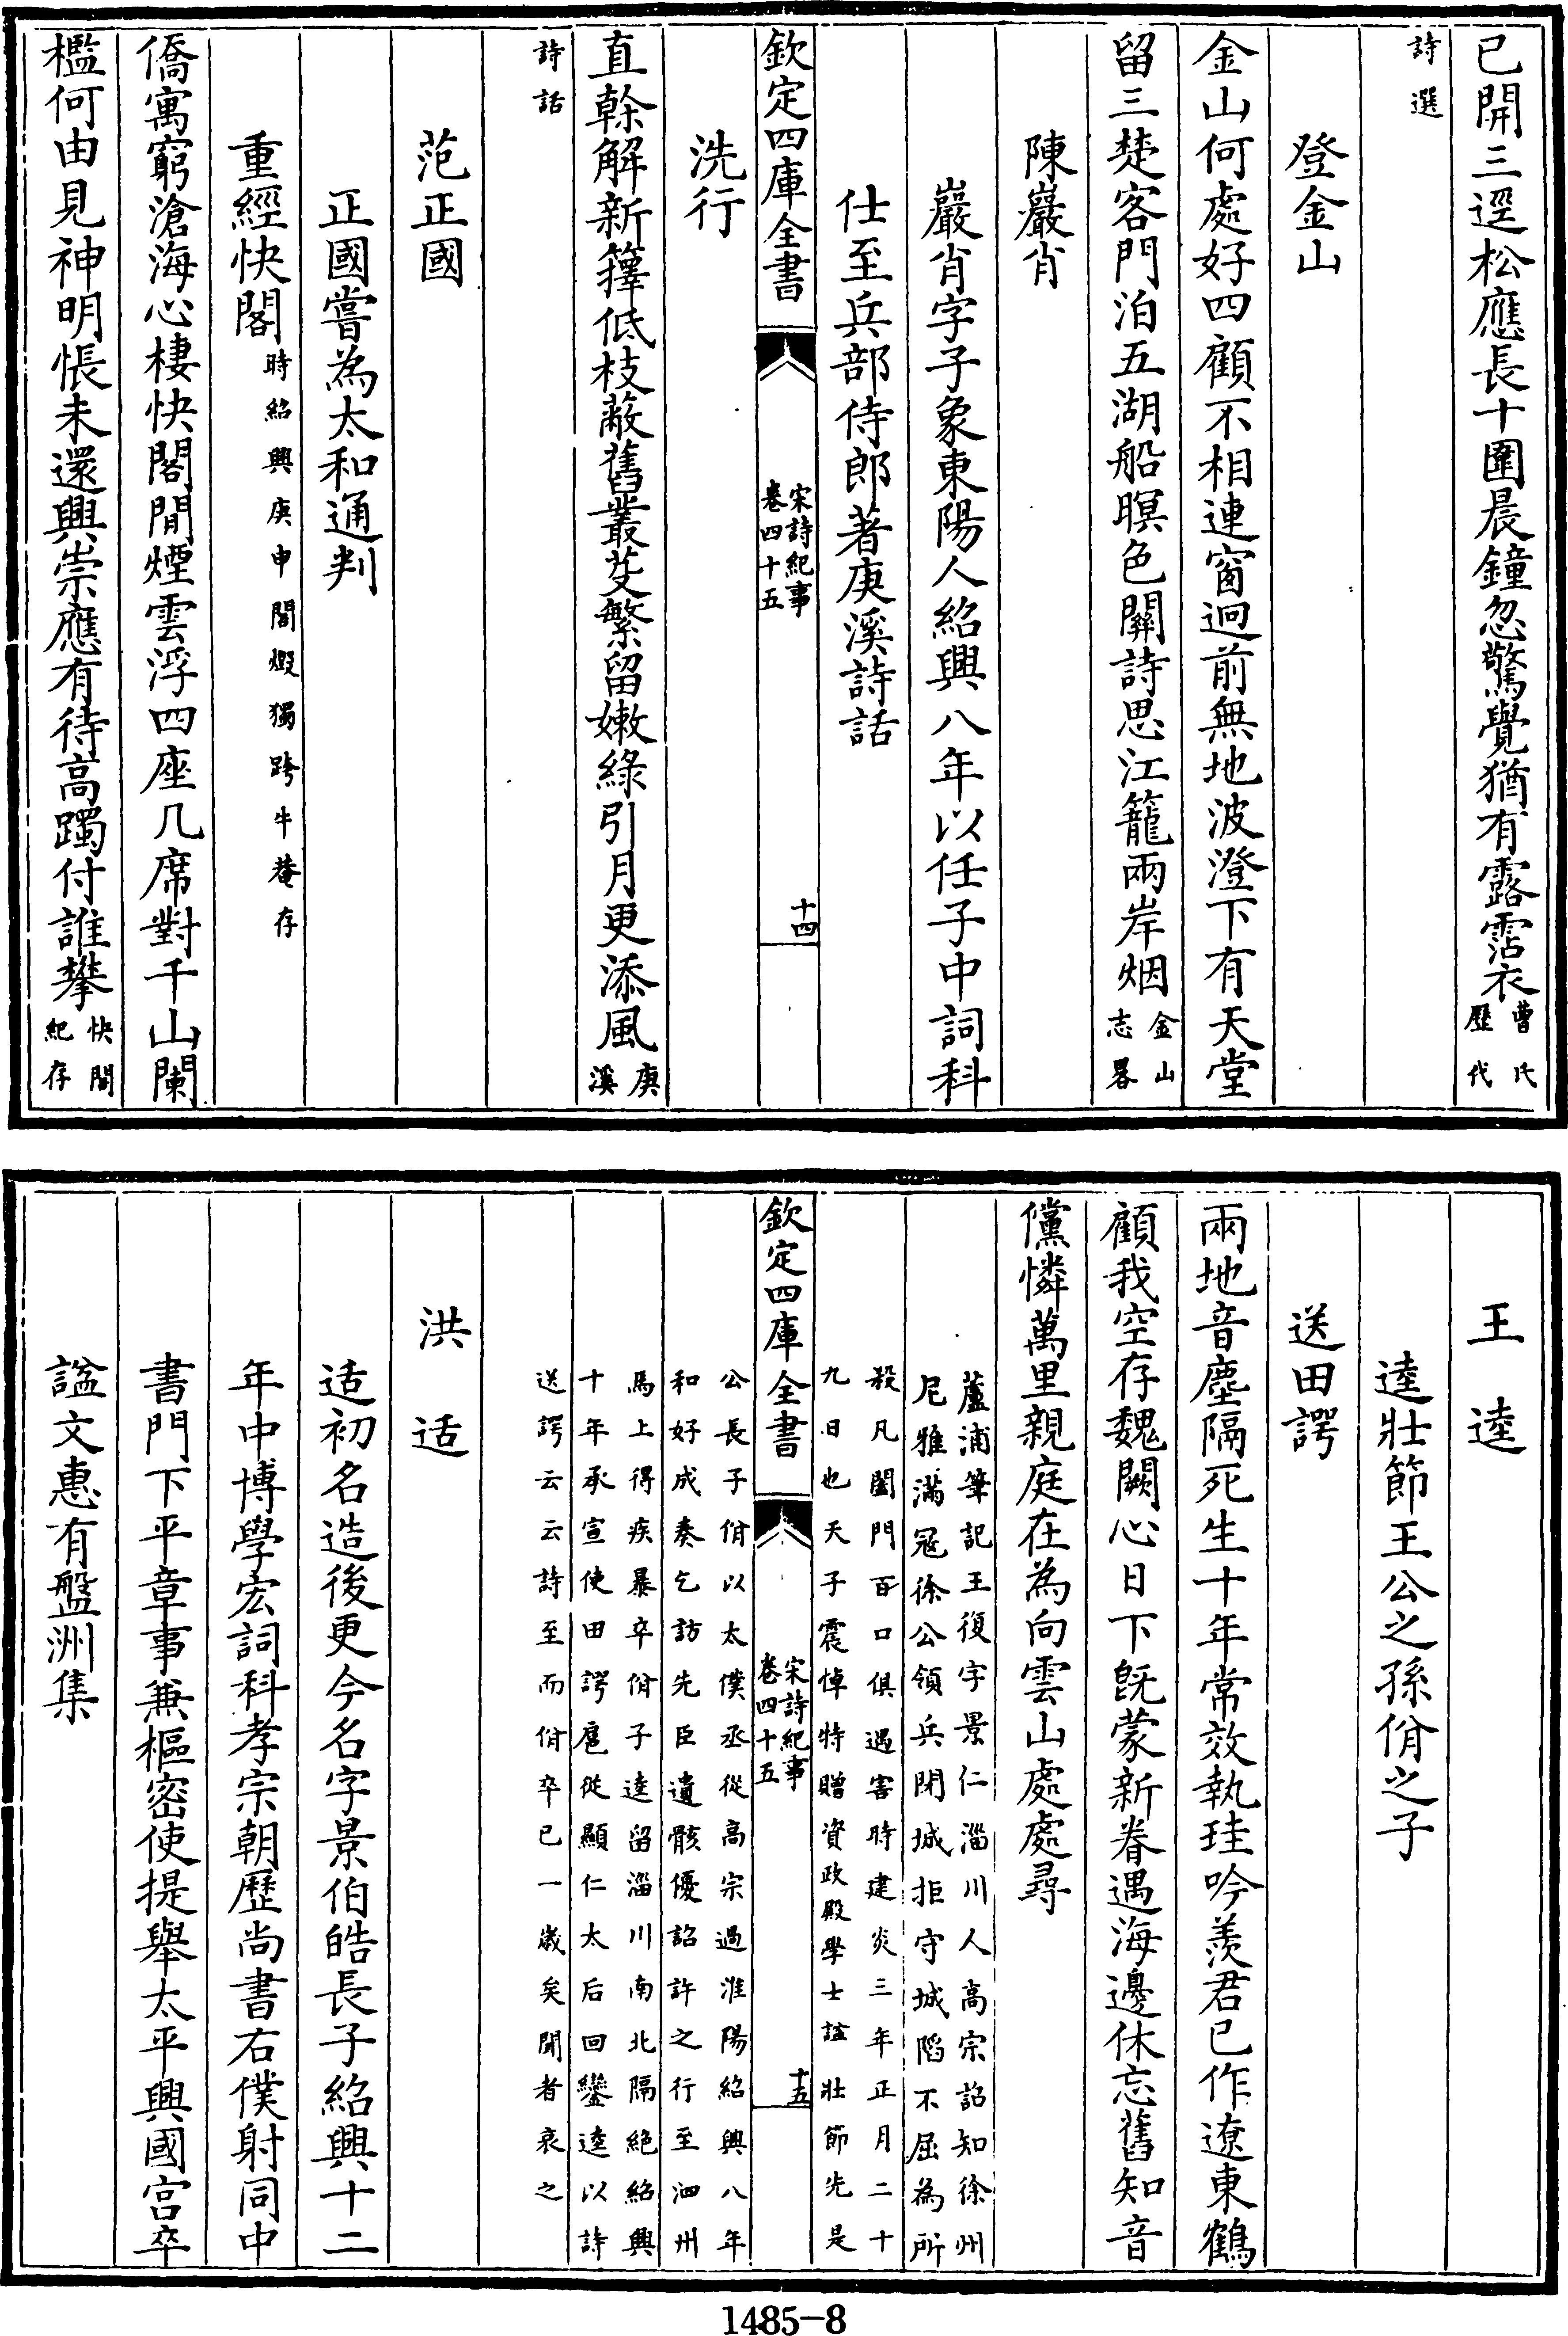 已開三逕松應長十圍晨鐘忽驚覺猶有露霑衣曹氏歷代
詩選
登金山
金山何處好四顧不相連窗迥前無地波澄下有天堂
留三楚客門泊五湖船暝色關詩思江籠兩岸烟金山志畧
陳巖肖
巖肖字子象東陽人紹興八年以任子中詞科
仕至兵部侍郎著庚溪詩話
欽定四庫全書
宋詩紀事
卷四十五
十四
洗行
直榦解新籜低枝蔽舊叢芟繁留嫩綠引月更添風庚溪
詩話
范正國
正國嘗為太和通判
重經快閣時紹興庚申閣燬獨跨牛菴存
僑寓窮滄海心棲快閣閒煙雲浮四座几席對千山闌
檻何由見神明悵未還興崇應有待高躅付誰攀快閣紀存
王逵
逵壯節王公之孫佾之子
送田諤
兩地音塵隔死生十年常效執珪吟羨君已作遼東鶴
顧我空存魏闕心日下旣蒙新眷遇海邊休忘舊知音
儻憐萬里親庭在為向雲山處處尋
蘆浦筆記王復字景仁淄川人高宗詔知徐州
尼雅滿冦徐公領兵閉城拒守城䧟不屈為所
殺凡闔門百口俱遇害時建炎三年正月二十
九日也天子震悼特贈資政殿學士諡壯節先是
欽定四庫全書
宋詩紀事
卷四十五
十五
公長子佾以太僕丞從高宗過淮陽紹興八年
和好成奏乞訪先臣遺骸優詔許之行至泗州
馬上得疾暴卒佾子逵留淄川南北隔絶紹興
十年承宣使田諤扈從顯仁太后回鑾逵以詩
送諤云云詩至而佾卒已一歲矣聞者哀之
洪适
适初名造後更今名字景伯皓長子紹興十二
年中博學宏詞科孝宗朝歷尚書右僕射同中
書門下平章事兼樞密使提舉太平興國宫卒
諡文惠有盤洲集
1485-8